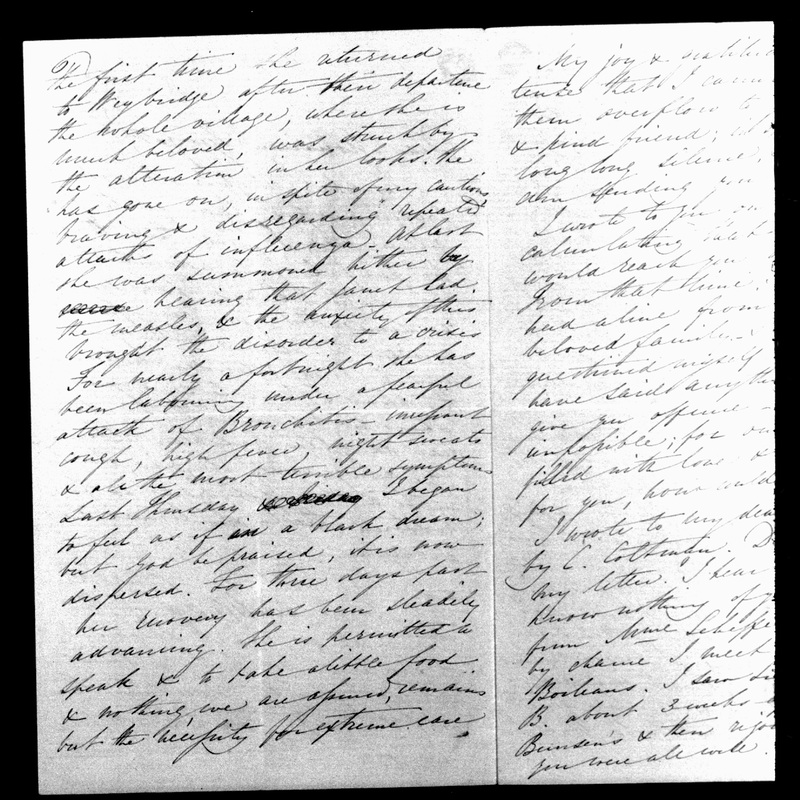 The first time she returned
to Weybridge after their departure
the whole village, where she is
much beloved, was struck by
the alteration in her looks. She
has gone on, in spite of my cautions,
braving & disregarding repeated
attacks of influenza. At last
she was summoned hither by
hearing that Janet had
the measles, & the anxiety of this
brought the disorder to a crisis
For nearly a fortnight she has
been labouring under a fearful
attack of Bronchitis incessant
cough, high fever, night sweats
& all the most terrible symptoms
Last Thursday I began
to feel as if in a black dream;
but God be praised, it is now
dispersed. For three days past
her recovery has been steadily
advancing. She is permitted to
speak & to take a little food
& nothing, we are assured, remains
but the necessity for extreme care.
My joy &
tense that I
them overflow to
& kind friend;
long long silence,
am sending you
I wrote to you
calculating that
would reach you
From that time
had a line from
beloved family.
questioned myself
have said anything
give you offence
impossible; for
filled with love &
for you, how could
I wrote to my dear
by C. Coltman.
my letter. I hear
know nothing of
from Mme Scheffer
by chance I meet
Boileaus. I saw
B. about 3 weeks
Bunsen's & then
you were all well.